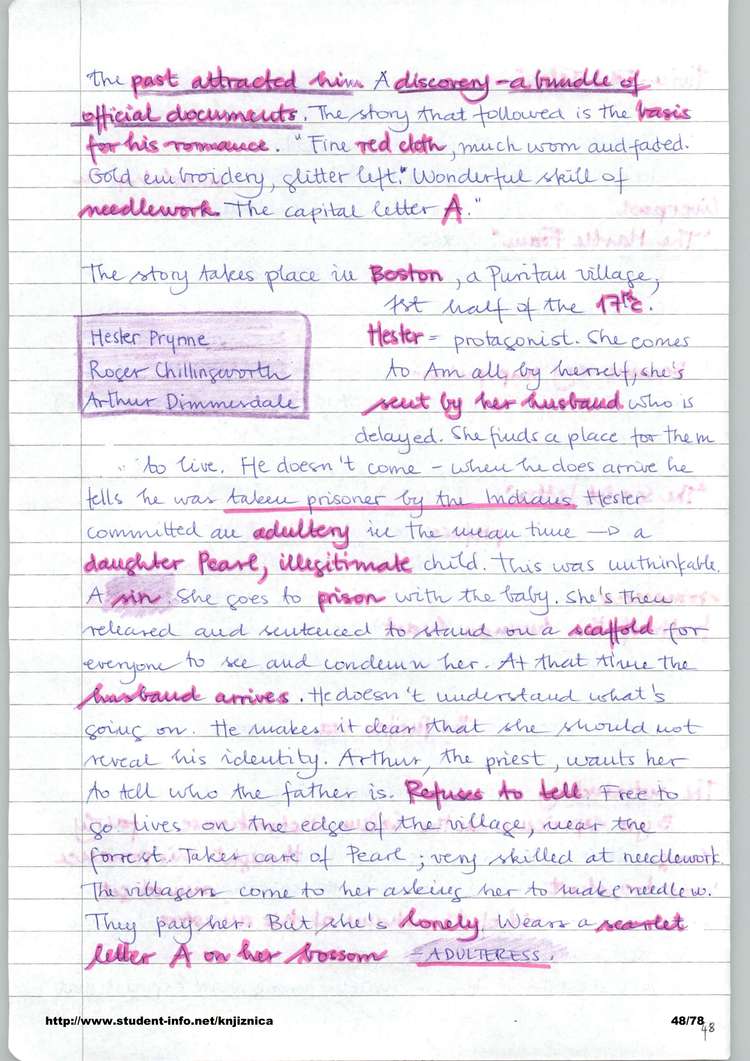 The past attracted him. A discovery – a bundle of
official documents. The story that followed is the basis
for his romance. "Fine red cloth, much worn and faded.
Gold embroidery, glitter left." Wonderful skill of
needlework. The capital letter A."
The story takes place in Boston, a Puritan village,
1st half of the 17th c.
Hester Prynne
Roger Chillingworth
Arthur Dimmesdale
Hester = protagonist. She comes
to Am all by herself, she's
sent by her husband who is
delayed. She finds a place for them
to live. He doesn't come – when he does arrive he
tells he was taken prisoner by the Indians. Hester
committed an adultery in the mean time → a
daughter Pearl, illegitimate child. This was unthinkable.
A sin. She goes to prison with the baby. She's then
released and sentenced to stand on a scaffold for
everyone to see and condemn her. At that time the
husband arrives. He doesn't understand what's
going on. He makes it clear that she should not
reveal his identity. Arthur, the priest, wants her
to tell who the father is. Refuses to tell. Free to
go lives on the edge of the village, near the
forrest. Takes care of Pearl; very skilled at needlework.
The villagers come to her asking her to make needlew.
They pay her. But she's lonely. Wears a scarlet
letter A on her bossom – ADULTERESS.
http://www.student-info.net/knjiznica
48/78
48